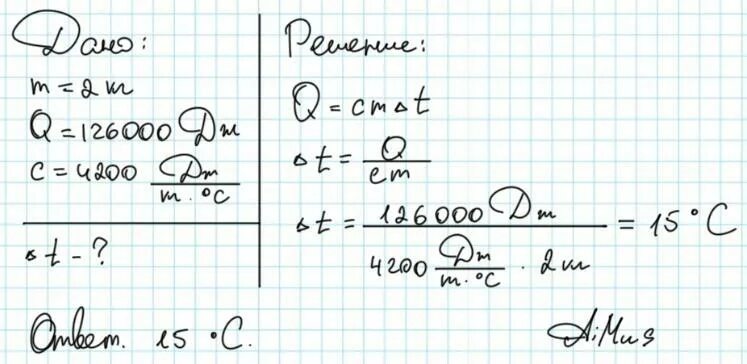 Дано:
m = 2 кг
Q = 126000 Дж
c = 4200 Дж/кг · °C
Δt - ?
Решение:
Q = cmΔt
Δt = Q/cm
Δt = 126000 Дж / 4200 Дж/кг · °C · 2 кг = 15 °C
Ответ. 15 °C.